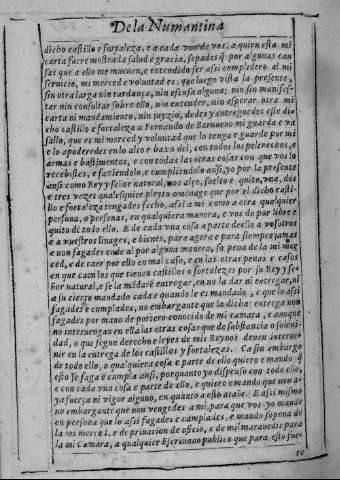 De la Numantina
dicho castillo e fortaleza, e a cada vno de vos, a quien esta mi
carta fuere mostrada salud e gracia, sepades q̃ por algunas cau
sas que a ello me mueuen, e entendido ser assi cumplidero al mi
seruicio, mi merced e voluntad es, que luego vista la presente,
sin otra larga nin tardança, nin escusa alguna, nin sin manifes-
tar nin consultar sobre ello, nin entender, nin esperar otra mi
carta ni mandamiento, nin juyzio, dedes y entreguedes esse di-
cho castillo e fortaleza a Fernando de Barnueuo mi guarda e va
sallo, que es mi merced y voluntad que lo tenga e guarde por mi
e lo apoderedes en lo alto e baxo del, con todos los petrechos, e
armas e bastimentos, e con todas las otras cosas con que vos lo
recebistes, e faziendolo, e cumpliendolo ansi, yo por la presente
ansi como Rey y señor natural, vos alço, suelto e quito, vna, dos
e tres vezes qualesquier pleyto omenage que por el dicho casti-
llo e fortaleza tengades fecho, assi a mi como a otra qualquier
persona, o personas, en qualquiera manera, e vos do por libre e
quito di todo ello. E de cada vna cosa a parte dello a vosotros
e a vuestros linages, e bienes, para agora e para siempre jamas
e non fagades ende al por alguna manera, so pena de la mi mer
ced, e de caer por ello en mal caso, e en las otras penas e casos
en que caen los que tienen castillos o fortalezas por su Rey y se-
ñor natural, e se la mãdarẽ entregar, en no la dar ni entregar, ni
a su cierto mandado cada e quando le es mandado, e que lo assi
fagades e cumplades, no embargante que la dicha entrega non
fagades por mano de portero conocido de mi camara, e aunque
no interuengan en ella las otras cosas que de substancia o soleni-
dad, o que segun derecho e leyes de mis Reynos deuen interue-
nir en la entrega de los castillos y fortalezas. Ca sin embargo
de todo ello, o qualquiera cosa e parte de ello quiero e mando q̃
esto se faga e cumpla ansi, porquanto yo dispenso con todo ello,
e con cada vna cosa e parte de ello, e quiero e mando que non a-
ya fuerça ni vigor alguno, en quanto a ello atañe. E assi mismo
no embargante que non vengedes a mi, para que vos yo mande
en persona que lo assi fagades e cumplades, e mando so pena de
la mi merced, e de priuacion de oficio, e de mil marauedis para
la mi Camara, a qualquier Escriuano publico que para esto fue
re